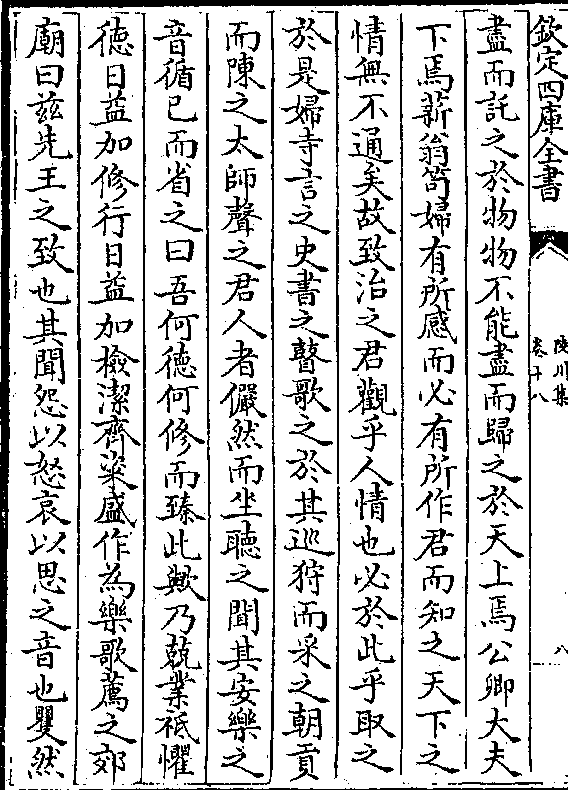 欽定四庫全書
陵川集
卷十八
八
盡而託之於物物不能盡而歸之於天上焉公卿大夫
下焉薪翁笱婦有所感而必有所作君而知之天下之
情無不通矣故致治之君觀乎人情也必於此乎取之
於是婦寺言之史書之瞽歌之於其巡狩而采之朝貢
而陳之太師聲之君人者儼然而坐聽之聞其安樂之
音循已而省之曰吾何徳何修而臻此歟乃兢業祗懼
徳日益加修行日益加檢潔齊粢盛作為樂歌薦之郊
廟曰兹先王之致也其聞怨以怒哀以思之音也瞿然